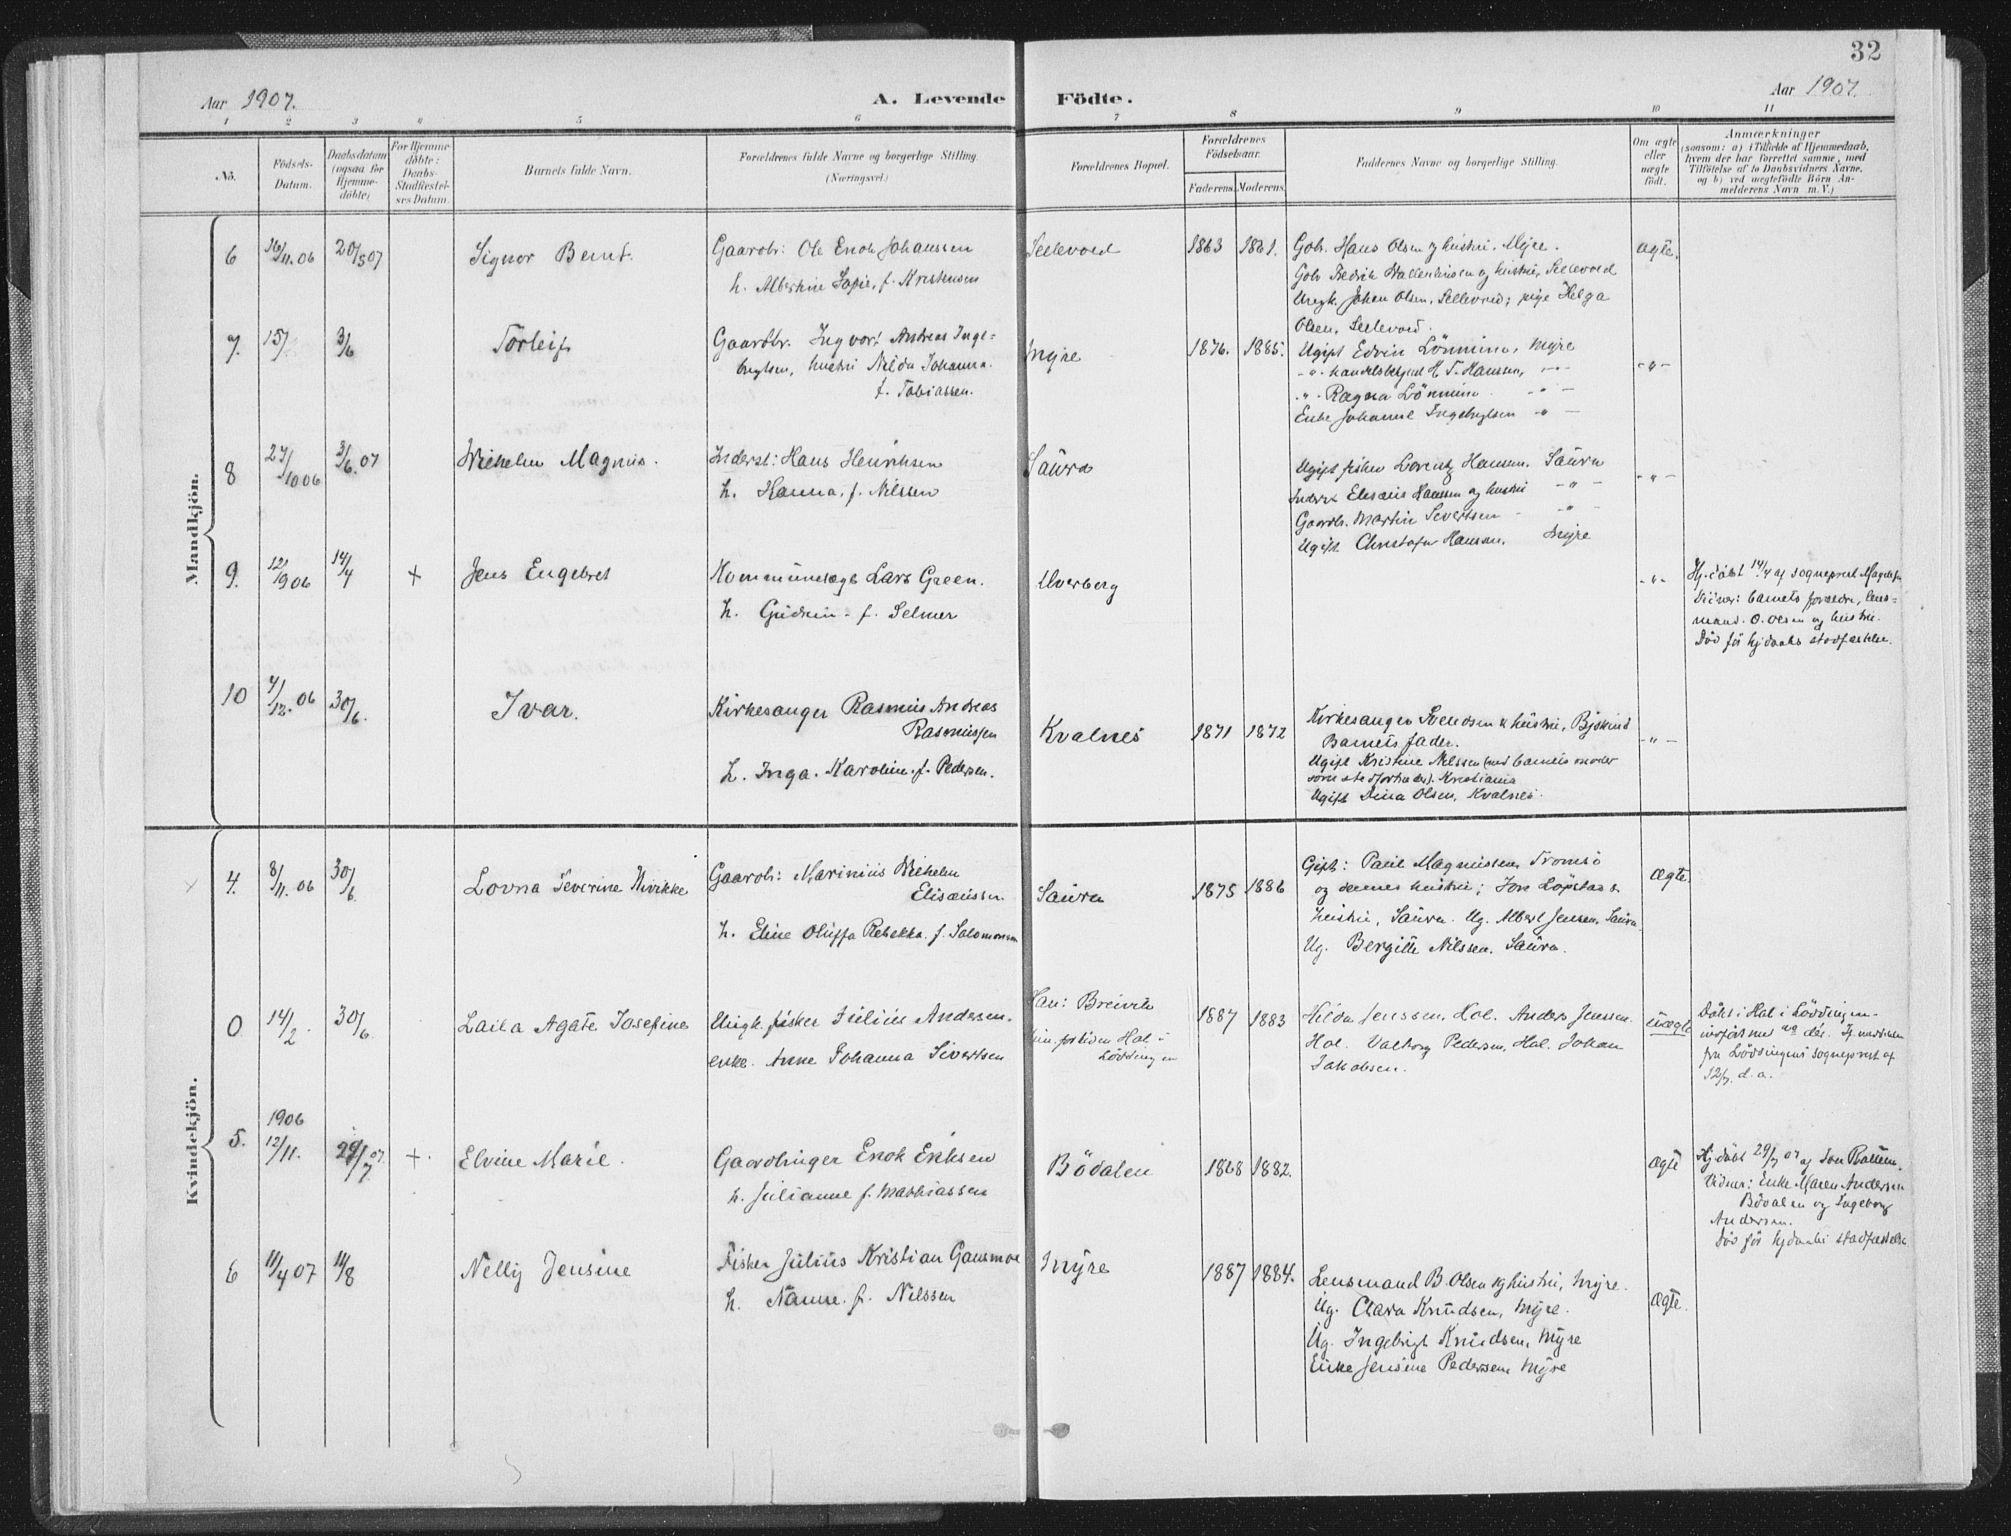 32
Aar 1907.
A. Levende Födte.
Aar 1907.
1 2 3 4 5 6 7 8 9 10 11
No.
Födsels-
Datum.
Daabsdatum
(ogsaa for
Hjemme-
döbte)
For Hjemme-
döbte:
Daabs-
Stadfæstel-
ses Datum.
Barnets fulde Navn.
Forældrenes fulde Navne og borgerlige Stilling.
(Næringsvei.)
Forældrenes Bopæl.
Forældrenes
Födselsaar.
Faderens. Moderens.
Faddernes Navne og borgerlige Stilling.
Om ægte
eller
uægte
født.
Anmærkninger
(saasom: a) i Tilfælde af Hjemmedaab,
hvem der har forrettet samme, med
Tilföielse af to Daabsvidners Navne,
og b) ved uægtefödte Börn An-
melderens Navn m. V.)
Mandkjön.
6 16/11.06 20/5 07 Signor Bernt.
Gaardbr: Ole Enok Johanssen
h. Albertine Sofie, f. Kristensen
Sellevold 1863 1861.
Gbr. Hans Olsen og hustru, Myre.
Gbr Fredrik og hustru, Sellevold
Ungk. Johan Olsen, Sellevold; pige Helga
Olsen, Sellevold.
ægte.
7. 15/ 3/6 Torleif
Gaardbr. Ingvart Andreas Inge-
brigtsen, hustru Nilda Johanna
f. Tobiassen.
Myre 1876. 1885.
Ugift Edvin Lönning, Myre
-"- handelsbetjent H. T. Hanssen, -"-
-"- Ragna Lönning -"-
Enke Johanne Ingebrigtsen -"-
-"-
8 27/10 06 3/6.07 Wilhelm Magnus.
Inderst: Hans Henriksen
h. Hanna, f. Nilssen
Saura
Ugift fisker Lorentz Hansen, Saura
Inderst Elisæus Hanssen og hustru -"-
Gaardbr. Martin Sivertsen -"-
Ugift Christofer Hanssen, Myre
-"-
9. 12/9 06 14/4 + Jens Engebret
Kommunelæge Lars Green.
h. Gudrun f. Selmer
Ulverberg
-"-
Hj. döbt 14/4 af sogneprest
Vidner: barnets forældre, lens-
mand O. Olsen og hustru.
Död för hjdaabs stadfæstelse.
10 4/12.06 30/6. Ivar.
Kirkesanger Rasmus Andreas
Rasmussen
h. Inga Karoline f. Pedersen.
Kvalnes 1871 1872
Kirkesanger Svendsen & hustru,
Barnets fader.
Ugift Kristine Nilssen (med barnets moder
som stedfortræder). Kristiania
Ugift Dina Olsen, Kvalnes.
-"-
Kvindekjön.
4. 8/11.06 30/6 Lovna Severine Hivikke
Gaardbr: Marinius Wilhelm
Elisæussen
h. Eline Oluffa Rebekka f. Salomonsen
Saura 1875 1886
Gift: Paul Magnussen Tromsö
og dennes hustru; Jon Löpstad &
hustru, Saura. Ug. Albert Jensen, Saura.
Ug. Bergitte Nilssen, Saura.
Ægte.
0. 14/2. 30/6 Laila Agate Josefine
Ungk. fisker Julius Andersen.
enke Anne Johanna Sivertsen
Han: Breivik
hun fortiden Hol i
Lödingen
1887 1883
Hilda Jenssen, Hol. Anders Jenssen
Hol. Valborg Pedersen, Hol. Johan
Jakobsen.
uægte
Döbt i Hol i Lödingen
indfört med No der. Ifl. meddelelse
fra Lödingens sogneprest af
12/7 d.a.
5. 1906
12/11. 29/7 07. + Elvine Marie.
Gaardbruger Enok Eriksen
h. Julianne f. Mathiassen
Bödalen 1868 1882.
Ægte
Hj. döbt 29/7 07 af
Vidner: Enke Maren Andersen
Bödalen og Ingeborg
Andersen.
Död för hjdaabs stadfæstelse
6 11/4 07 11/8 Nelly Jensine
Fisker Julius Kristian Gausmoe
h. Nanne f. Nilssen
Myre 1887 1884.
Lensmand B. Olsen og hustru, Myre.
Ug. Clara Knudsen, Myre.
Ug. Ingebrigt Knudsen, Myre
Enke Jensine Pederssen Myre
Ægte.